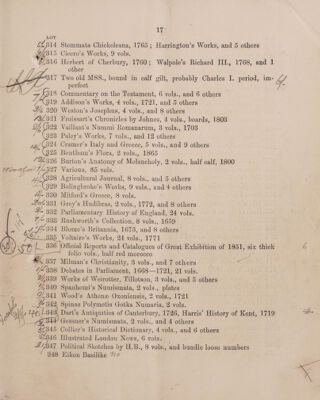 17
LOT
314 Stemmata Chicheleana, 1765; Harrington's Works, and 5 others
315 Cicero's Works, 9 vols.
316 Herbert of Cherbury, 1760; Walpole's Richard III., 1768, and 1
other
317 Two old MSS., bound in calf gilt, probably Charles I. period, im-
perfect
4.
318 Commentary on the Testament, 6 vols., and 6 others
319 Addison's Works, 4 vols., 1721, and 5 others
320 Weston's Josephus, 4 vols., and 8 others
321 Froissart's Chronicles by Johnes, 4 vols., boards, 1803
322 Vaillant's Nummi Romanorum, 3 vols., 1703
323 Paley's Works, 7 vols., and 12 others
324 Cramer's Italy and Greece, 5 vols., and 9 others
325 Bentham's Flora, 2 vols., 1865
326 Burton's Anatomy of Melancholy, 2 vols., half calf, 1800
327 Various, 85 vols.
328 Agricultural Journal, 8 vols., and 5 others
329 Bolingbroke's Works, 9 vols., and 4 others
330 Mitford's Greece, 8 vols.
331 Grey's Hudibras, 2 vols., 1772, and 8 others
332 Parliamentary History of England, 24 vols.
333 Rushworth's Collection, 8 vols., 1659
334 Blome's Britannia, 1673, and 8 others
335 Voltaire's Works, 24 vols., 1771
336 Official Reports and Catalogues of Great Exhibition of 1851, six thick
folio vols., half red morocco
337 Milman's Christianity, 3 vols., and 7 others
338 Debates in Parliament, 1668—1721, 21 vols.
339 Works of Weirotter, Tillotson, 3 vols., and 5 others
340 Spanhemi's Numismata, 2 vols., plates
341 Wood's Athenæ Oxoniensis, 2 vols., 1721
342 Spinas Polymetis Gotks Nunaria, 2 vols.
343 Dart's Antiquities of Canterbury, 1726, Harris' History of Kent, 1719
344 Gessner's Numismata, 2 vols., and 4 others
345 Collier's Historical Dictionary, 4 vols., and 6 others
346 Illustrated London News, 6 vols.
347 Political Sketches by H.B., 8 vols., and bundle loose numbers
348 Eikon Basilike